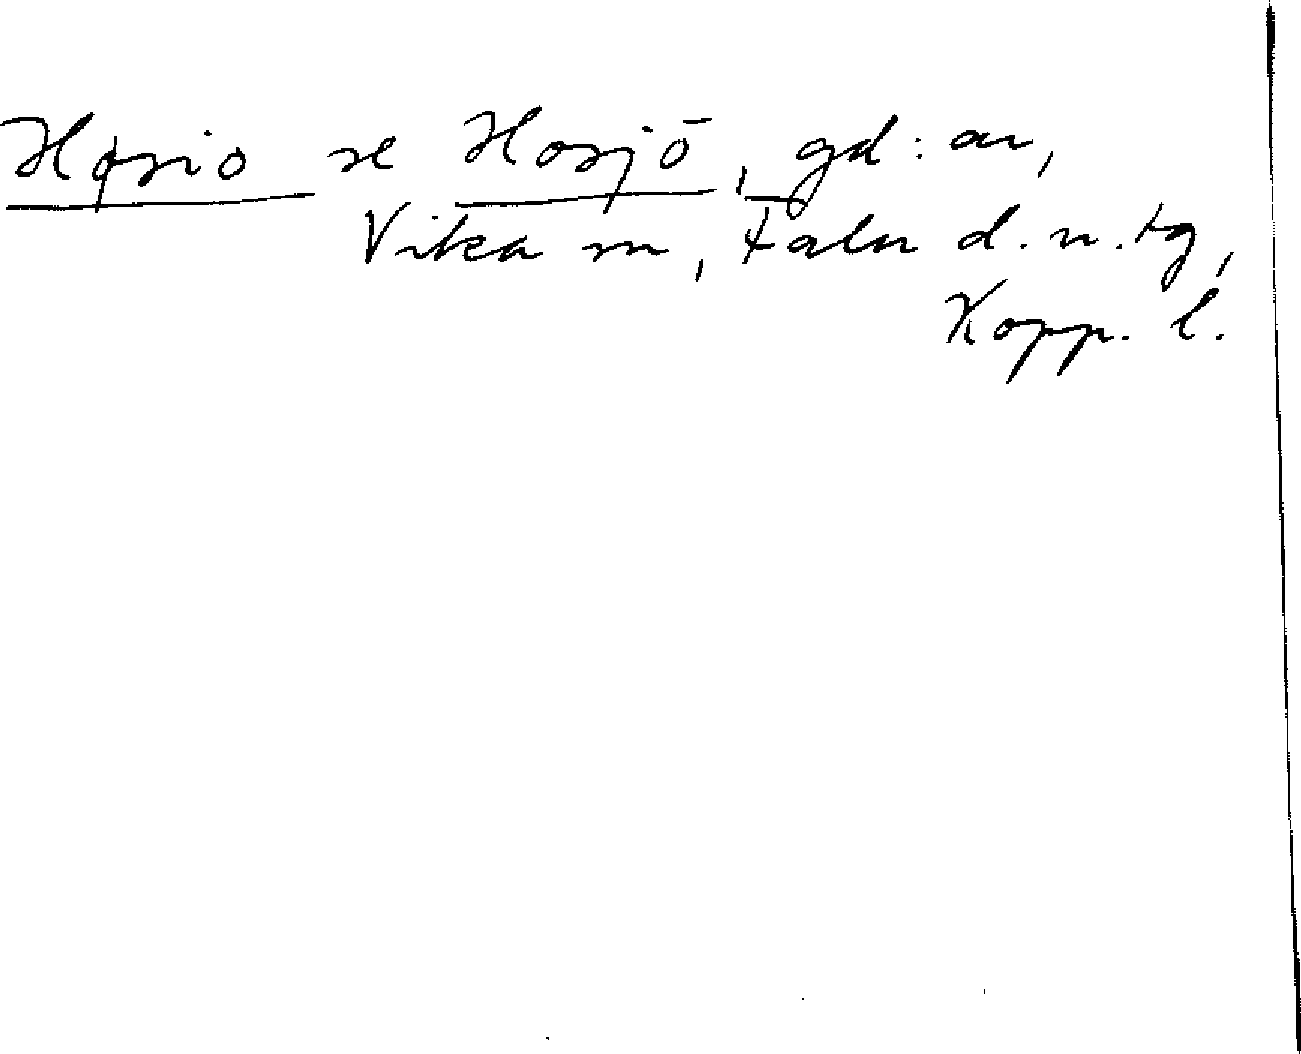 Hosio se Hosjö, gd: ar,
Vika sn, Falu d. n. tg,
Kopp. l.